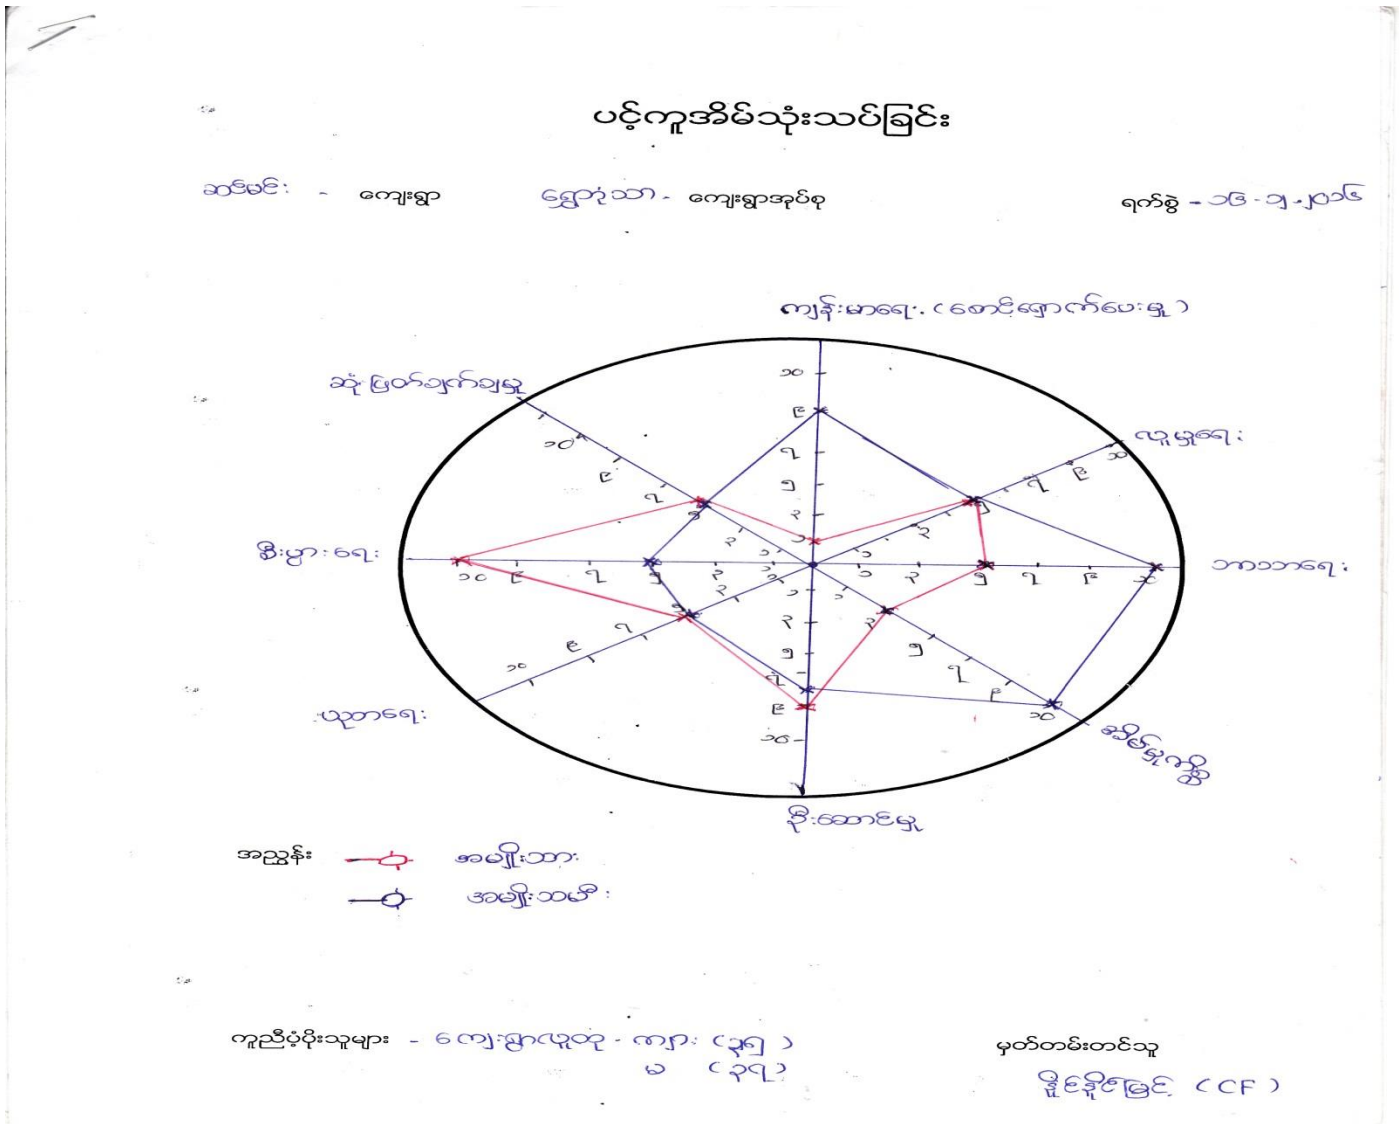 ပင့်ကူအိမ်သုံးသပ်ခြင်း
ဆင်မင်း - ကျေးရွာ ရွှေဘုံသာ - ကျေးရွာအုပ်စု ရက်စွဲ - ၁၆-၁၂-၂၀၁၆
ကျန်းမာရေး (စောင့်ရှောက်ပေးမှု)
ဆုံးဖြတ်ချက်ချမှု
လူမှုရေး
စီးပွားရေး
ဘာသာရေး
ယုတာရေး
အိမ်မှုကိစ္စ
ဦးဆောင်မှု
၁၀ ၉ ၇ ၅ ၂ ၁
၁ ၂ ၅ ၇ ၉ ၁၀
၁ ၂ ၅ ၇ ၉ ၁၀
၁ ၂ ၅ ၇ ၉ ၁၀
၁ ၂ ၅ ၇ ၉ ၁၀
၁ ၂ ၅ ၇ ၉ ၁၀
၁၀ ၉ ၇ ၅ ၂ ၁
၁၀ ၉ ၇ ၅ ၂ ၁
အညွှန်း အမျိုးသား
အမျိုးသမီး
ကူညီပံ့ပိုးသူများ - ကျေးရွာလူထု - ကျား (၃၅)
မ (၃၇)
မှတ်တမ်းတင်သူ
နိုင်နိုင်မြင့် (CF)